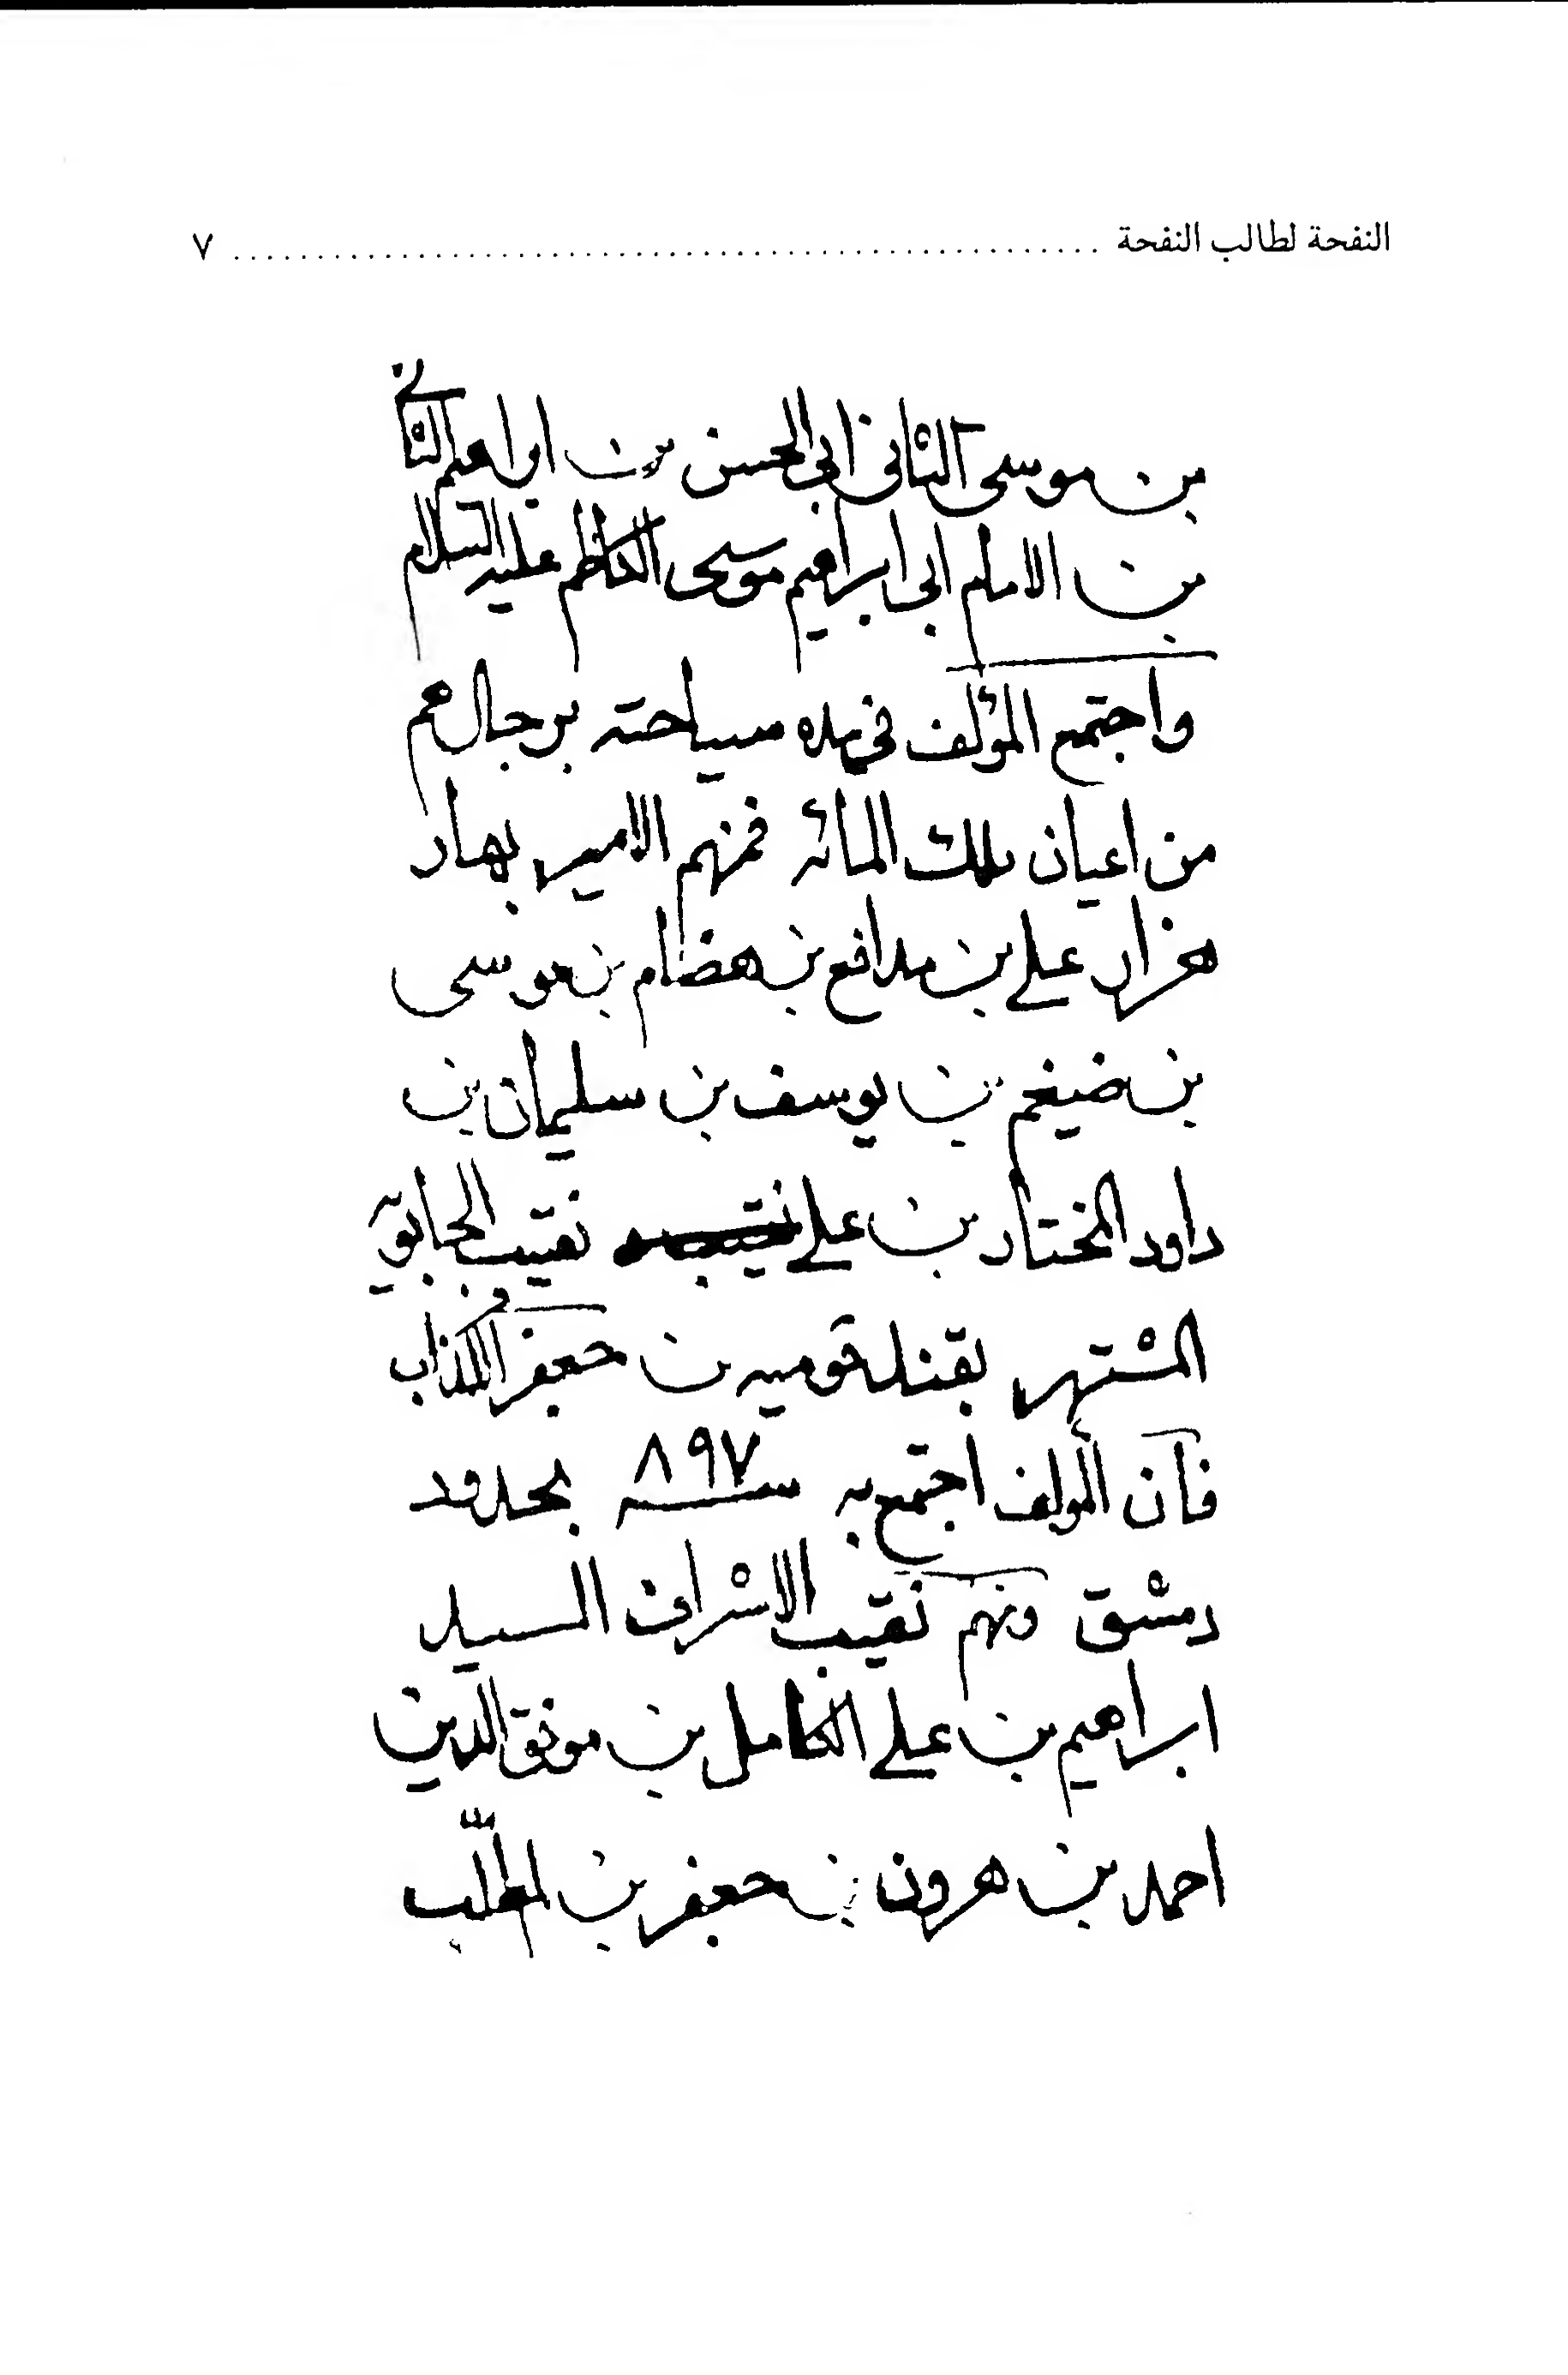 النفحة لطالب النفحة ........................................ ٧
بن موسى الثاني ابي الحسن بن ابراهيم الثاني
بن الامام ابي ابراهيم موسى الكاظم عليه السلام
واجتمع المؤلف في مده سياحته برجال هم
من اعيان تلك المائه فمنهم الامير بهار
هزار علي بن مدافع بن هضام بن موسى
بن ضيغم بن يوسف بن سليمان بن
داود المختار بن علي نقيب الحايريّه
المشتهر بقتله قوميه بن جعفر الكذاب
فآن المولف اجتمع به سنه ٨٩٧ بحدود
دمشق ومنهم نقيب الاشراف السيد
ابراهيم بن علي الكامل بن موفق الدين
احمد بن هرون بن جعفر بن المطّلب